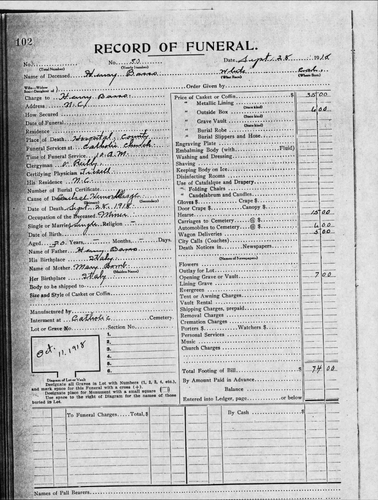 102
RECORD OF FUNERAL.
No. No. 50 Date, Sept. 28, 1918
(Total Number) (Yearly Number)
Name of Deceased Henry Barro White
(Where Born)
Order Given by
Charge to Henry Barro
Address N.C.
How Secured
Date of Funeral
Residence
Place of Death Hospital County
Funeral Services at Catholic Church
Time of Funeral Service 10 A.M.
Clergyman
Certifying Physician
His Residence N.C.
Number of Burial Certificate
Cause of Death
Date of Death Sept. 28, 1918
Occupation of the Deceased Miner
Single or Married Single Religion
Date of Birth
Aged 30 Years Months, Days
Name of Father Henry Barro
His Birthplace Italy
Name of Mother Mary
(Maiden Name)
Her Birthplace Italy
Body to be shipped to
Size and Style of Casket or Coffin
Manufactured by
Interment at Catholic Cemetery
Lot or Grave No. Section No.
Oct. 11, 1918
1
2
3
4
5
6
Diagram of Lot or Vault
Designate all Graves in Lot with Numbers (1, 2, 3, 4, etc.),
and mark space for this Funeral with a cross (+)
Designate place for Monument with a small square
Use space to the right of Diagram for the names of those
buried in Lot.
Price of Casket or Coffin 35 00
" Metallic Lining
(State kind)
" Outside Box 6 00
(State kind)
" Grave Vault
(State kind)
" Burial Robe
" Burial Slippers and Hose
Engraving Plate
Embalming Body (with Fluid)
Washing and Dressing
Shaving
Keeping Body on Ice
Disinfecting Rooms
Use of Catafalque and Drapery
" Folding Chairs
" Candelabrum and Candles
Gloves $ Crape $
Door Crape $ Canopy $
Hearse 15 00
Carriages to Cemetery @ $
Automobiles to Cemetery @ $ 6 00
Wagon Deliveries 5 00
City Calls (Coaches)
Death Notices in Newspapers
Flowers
Outlay for Lot
Opening Grave or Vault 7 00
Lining Grave
Evergreen
Tent or Awning Charges
Vault Rental
Shipping Charges, prepaid
Removal Charges
Cremation Charges
Porters $ Watchers $
Personal Services
Music
Church Charges
Total Footing of Bill $ 74 00
By Amount Paid in Advance
Balance
Entered into Ledger, page or below.
To Funeral Charges, Total, $ By Cash $
Names of Pall Bearers